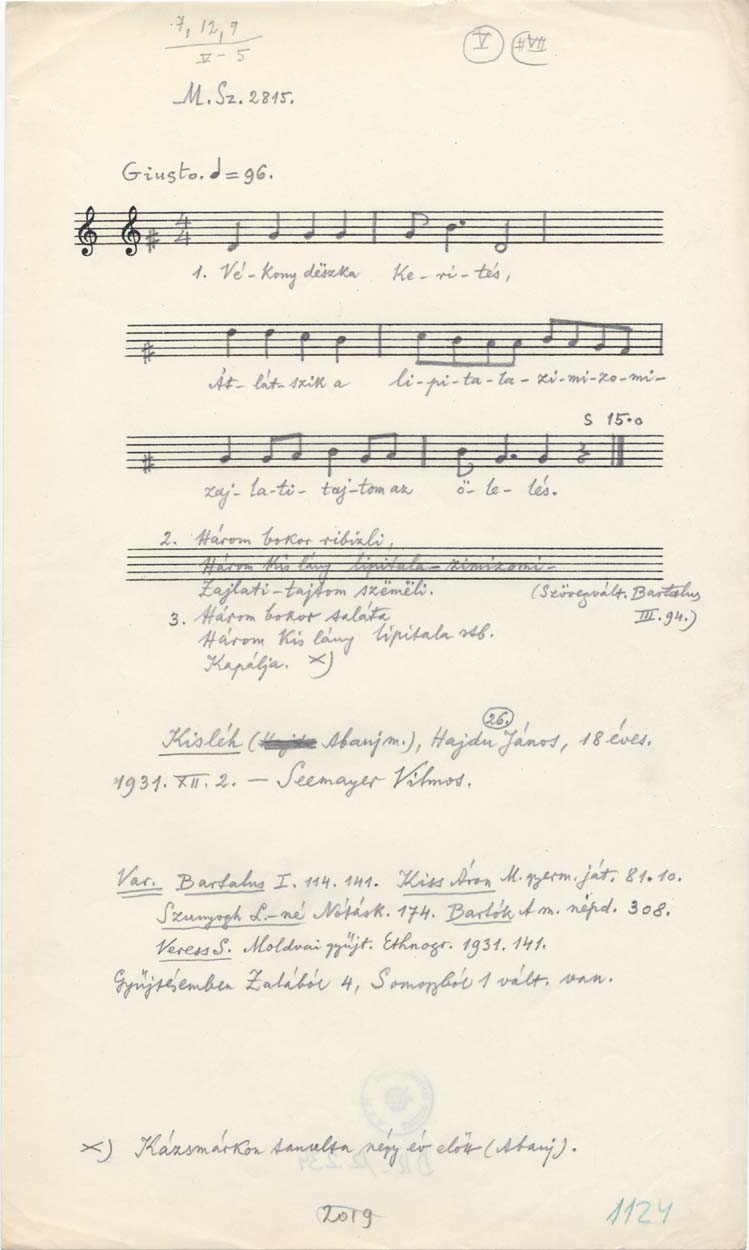 7, 12, 9
V - 5
V #VII
M. Sz. 2815.
Giusto. = 96.
4
4
1. Vé-kony dëszka Ke-ri-tés,
Át-lát-szik a li-pi-ta-la-zi-mi-zo-mi-
S 15.0
zaj-la-ti-taj-tom az ö-le-lés.
2. Három bokor ribizli,
Három kis lány lipitala-zimizomi-
Zajlati-tajtom szëmëli.
(Szövegvált. Bartalus
III. 94.)
3. Három bokor saláta
Három kis lány lipitala stb.
Kapálja. x)
26.
Kisléh ( Abaujm.), Hajdu János, 18 éves.
1931. XII. 2. — Seemayer Vilmos.
Var. Bartalus I. 114. 141. Kiss Áron M. gyerm. ját. 81. 10.
Szunyogh L.-né Nótásk. 174. Bartók A m. népd. 308.
Veress S. Moldvai gyűjt. Ethnogr. 1931. 141.
Gyűjtésemben Zalából 4, Somogyból 1 vált. van.
x) Kázsmárkon tanulta négy év előtt (Abauj).
2019
1124